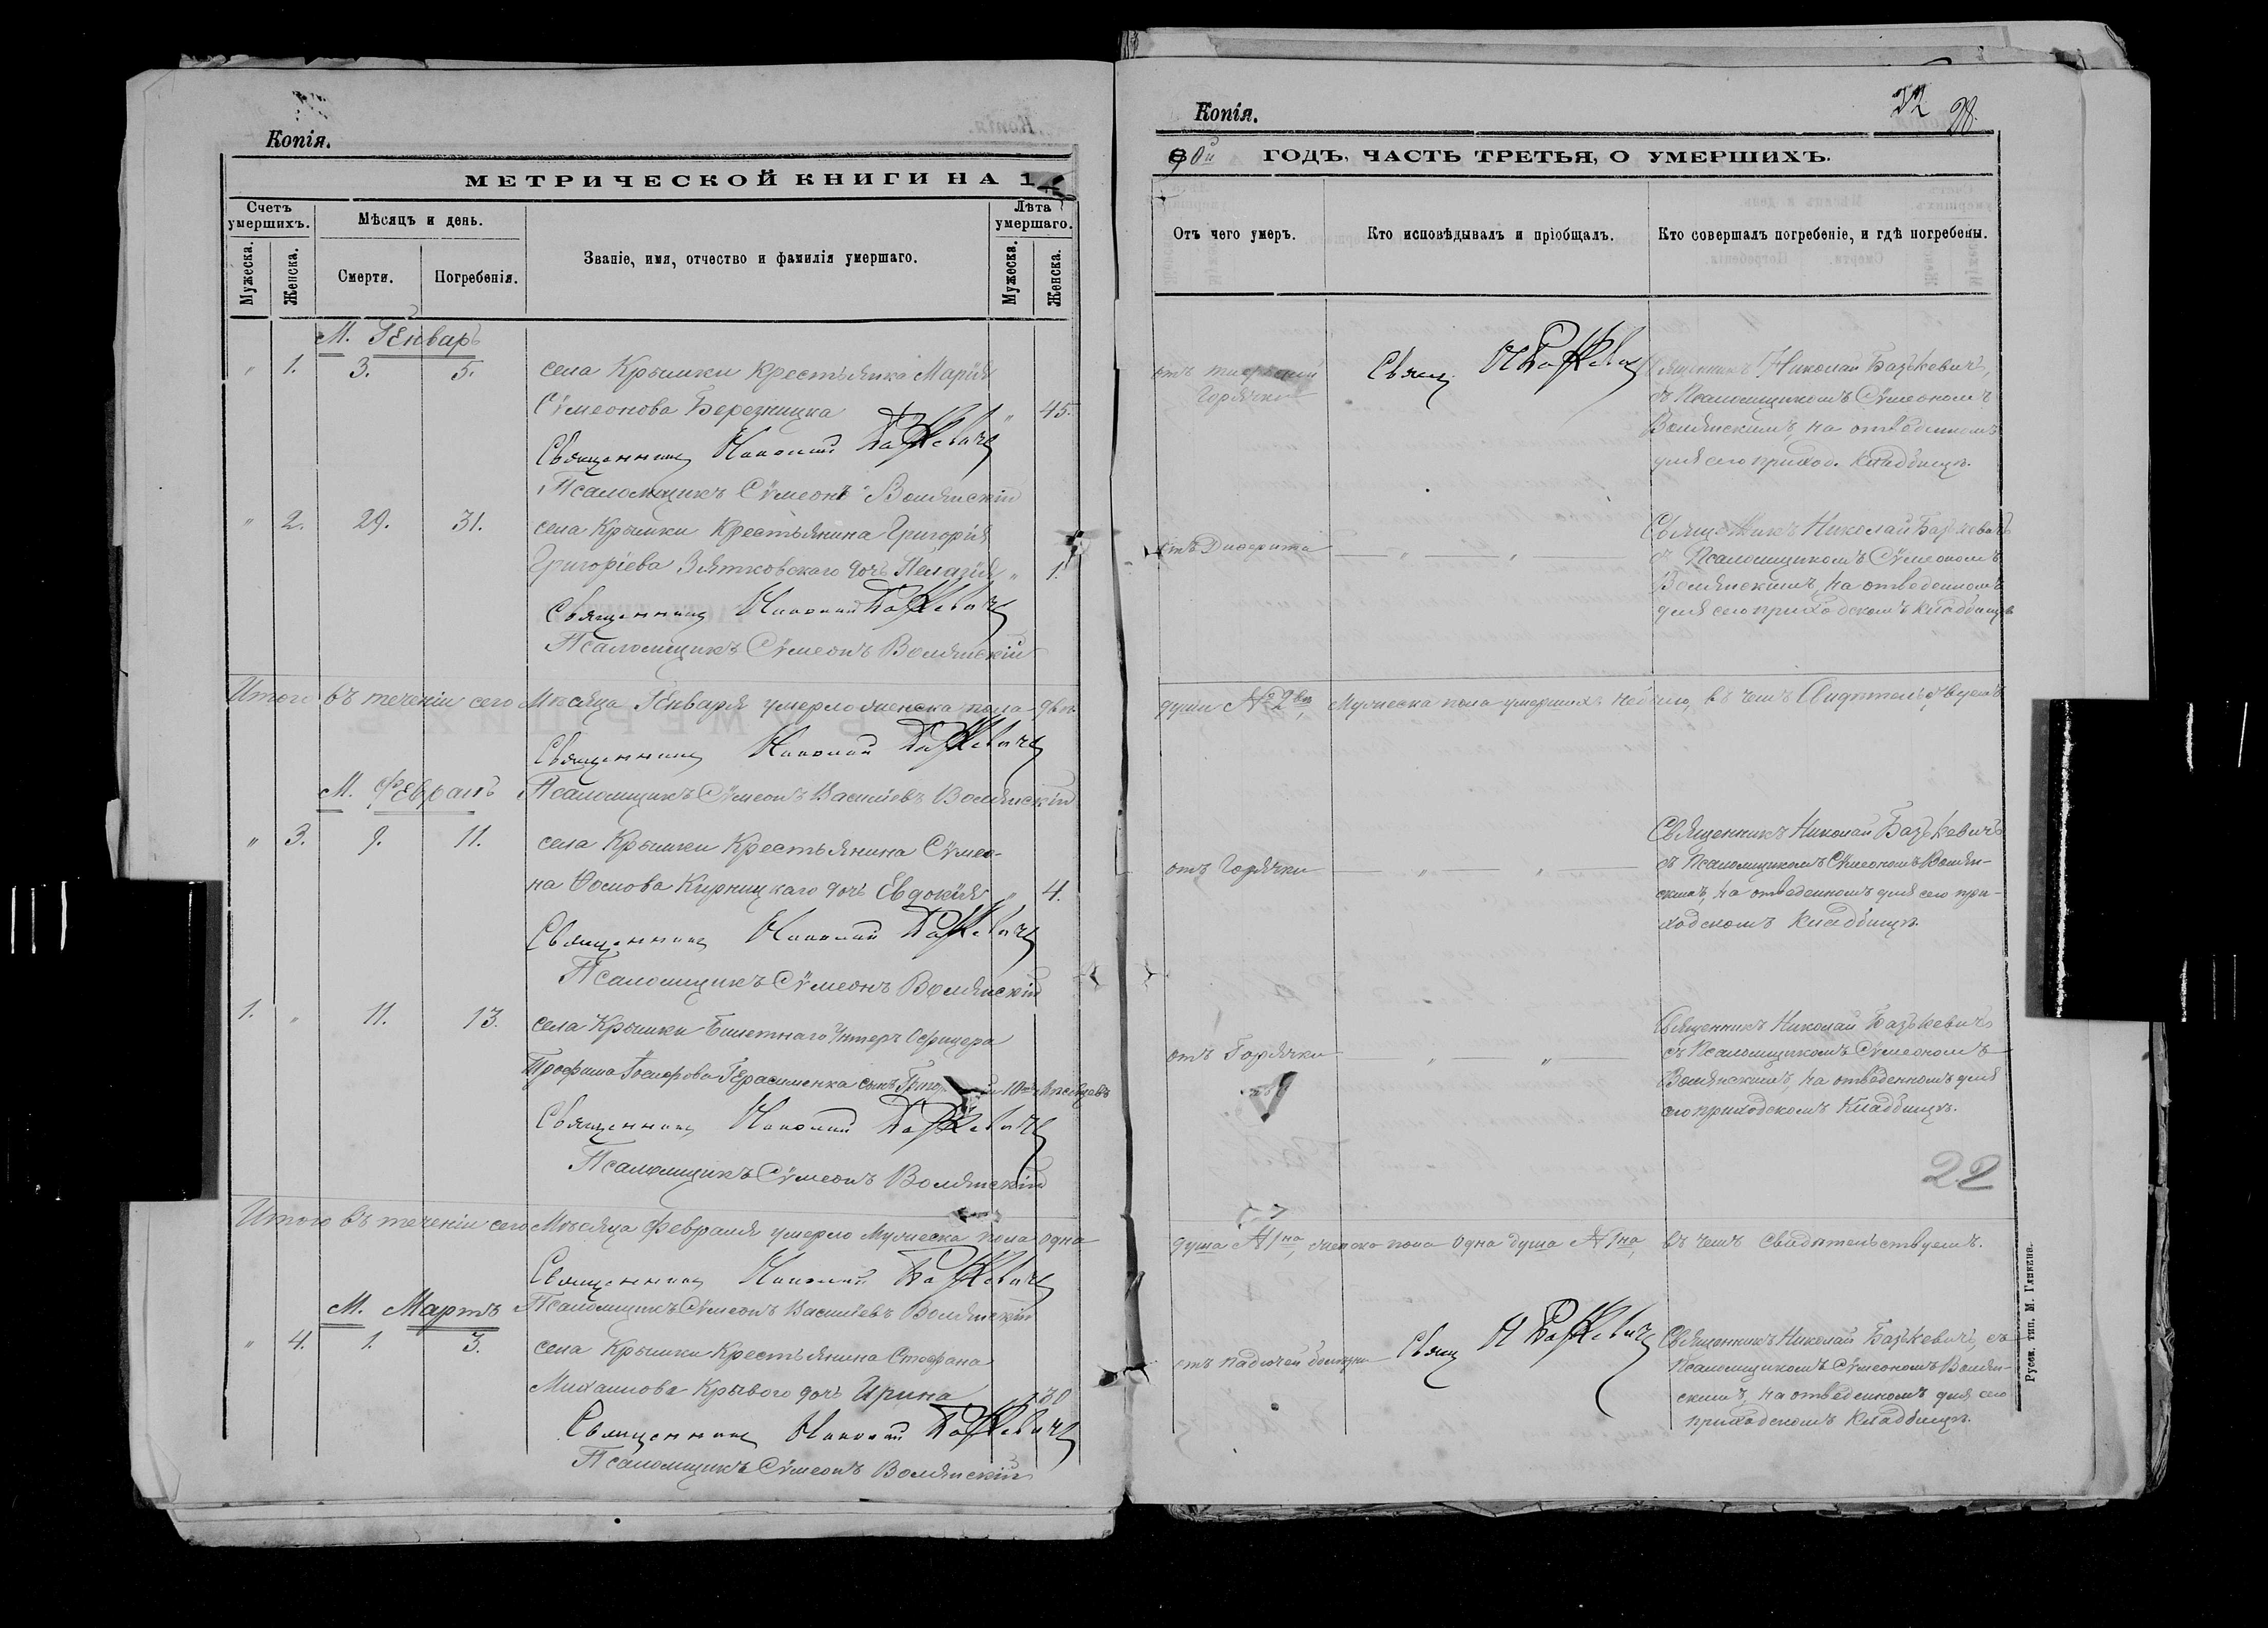 Копія.
МЕТРИЧЕСКОЙ КНИГИ НА 1
Счетъ умершихъ.
Мѣсяцъ и день.
Званіе, имя, отчество и фамилія умершаго.
Лѣта умершаго.
Мужеска.
Женска.
Смерти.
Погребенія.
Мужеска.
Женска.
М. Генварь
" 1. 3. 5. села Крымки Крестьянка Марія
Сѵмеонова Березницка " 45.
Священникъ Николай Базькевичъ
Псаломщикъ Сѵмеонъ Волянскій
" 2. 29. 31. села Крымки Крестьянина Григорія
Григоріева Зятковскаго дочь Пелагія " 1.
Священникъ Николай Базькевичъ
Псаломщикъ Сѵмеонъ Волянскій
Итого въ теченіи сего Мѣсяца Генваря умерло женска пола двѣ
Священникъ Николай Базькевичъ
М. Февраль
Псаломщикъ Сѵмеонъ Васильевъ Волянскій
" 3. 9. 11. села Крымки Крестьянина Сѵмео-
на Ѳомова Кирницкаго дочь Евдокія " 4.
Священникъ Николай Базькевичъ
Псаломщикъ Сѵмеонъ Волянскій
1. " 11. 13. села Крымки Билетнаго Унтеръ Офицера
Трофима Іосифова Герасименка сынъ 10 мѣсяцевъ
Священникъ Николай Базькевичъ
Псаломщикъ Сѵмеонъ Волянскій
Итого въ теченіи сего Мѣсяца Февраля умерло Мужеска пола одна
Священникъ Николай Базькевичъ
М. Мартъ
Псаломщикъ Сѵмеонъ Васильевъ Волянскій
" 4. 1. 3. села Крымки Крестьянина Стефана
Михаилова Крывого дочь Ирина 30
Священникъ Николай Базькевичъ
Псаломщикъ Сѵмеонъ Волянскій
Копія.
32
90й ГОДЪ, ЧАСТЬ ТРЕТЬЯ, О УМЕРШИХЪ.
Отъ чего умеръ.
Кто исповѣдывалъ и пріобщалъ.
Кто совершалъ погребеніе, и гдѣ погребены.
отъ
Горячки
Свящ. Н Базькевичъ
Священникъ Николай Базькевичъ,
съ Псаломщикомъ Сѵмеономъ
Волянскимъ, на отведенномъ
для сего приход. кладбищѣ.
отъ Диѳерита
Священникъ Николай Базькевичъ
съ Псаломщикомъ Сѵмеономъ
Волянскимъ, на отведенномъ
для сего приходскомъ кладбищѣ
души № 2ва, Мужеска пола умершихъ небыло, въ чемъ Свидѣтельствуемъ
отъ Горячки
Священникъ Николай Базькевичъ
съ Псаломщикомъ Сѵмеономъ Волян-
скимъ, на отведенномъ для сего при-
ходскомъ кладбищѣ.
отъ Горячки
Священникъ Николай Базькевичъ
съ Псаломщикомъ Сѵмеономъ
Волянскимъ, на отведенномъ для
сего приходскомъ кладбищѣ.
22
душа № 1на, женска пола одна душа № 1на, въ чемъ свидѣтельствуемъ.
отъ падючей болѣзни
Свящ Н Базькевичъ
Священникъ Николай Базькевичъ, съ
Псаломщикомъ Сѵмеономъ Волян-
скимъ, на отведенномъ для сего
приходскомъ кладбищѣ.
Русск. тип. М. Гликина.